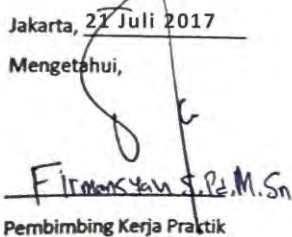 Jakarta, 21 Juli 2017
Mengetahui,
Firmansyah S.Pd.M.Sn
Pembimbing Kerja Praktik